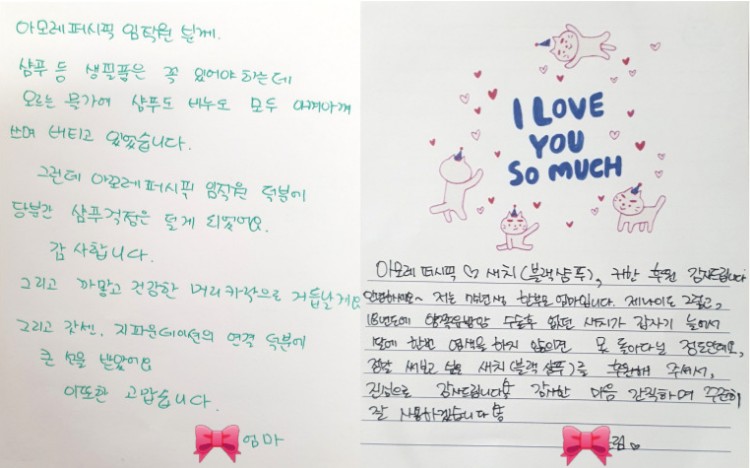 아모레퍼시픽 임직원 분께.
샴푸 등 생필품은 꼭 있어야 하는데
오르는 물가에 샴푸도 비누도 모두 아껴아껴
쓰며 버티고 있었습니다.
그런데 아모레퍼시픽 임직원 덕분에
당분간 샴푸걱정은 덜게 되었어요.
감사합니다.
그리고 까맣고 건강한 머리카락으로 거듭날게요
그리고 갓센. 지파운데이션의 연결 덕분에
큰 선물 받았어요
이또한 고맙습니다.
엄마
I LOVE
YOU
SO MUCH
아모레퍼시픽 ♡ 새치(블랙샴푸), 귀한 후원 감사드립니다
안녕하세요~ 저는 한부모 엄마입니다. 제나이도 그렇고,
18년도에 수술후 없던 새치가 갑자기 늘어서
1달에 한번 염색을 하지 않으면 못 돌아다닐 정도인데요,
정말 써보고 싶은 새치(블랙샴푸)를 후원해 주셔서,
진심으로 감사드립니다 감사한 마음 간직하며 꾸준히
잘 사용하겠습니다
드림.